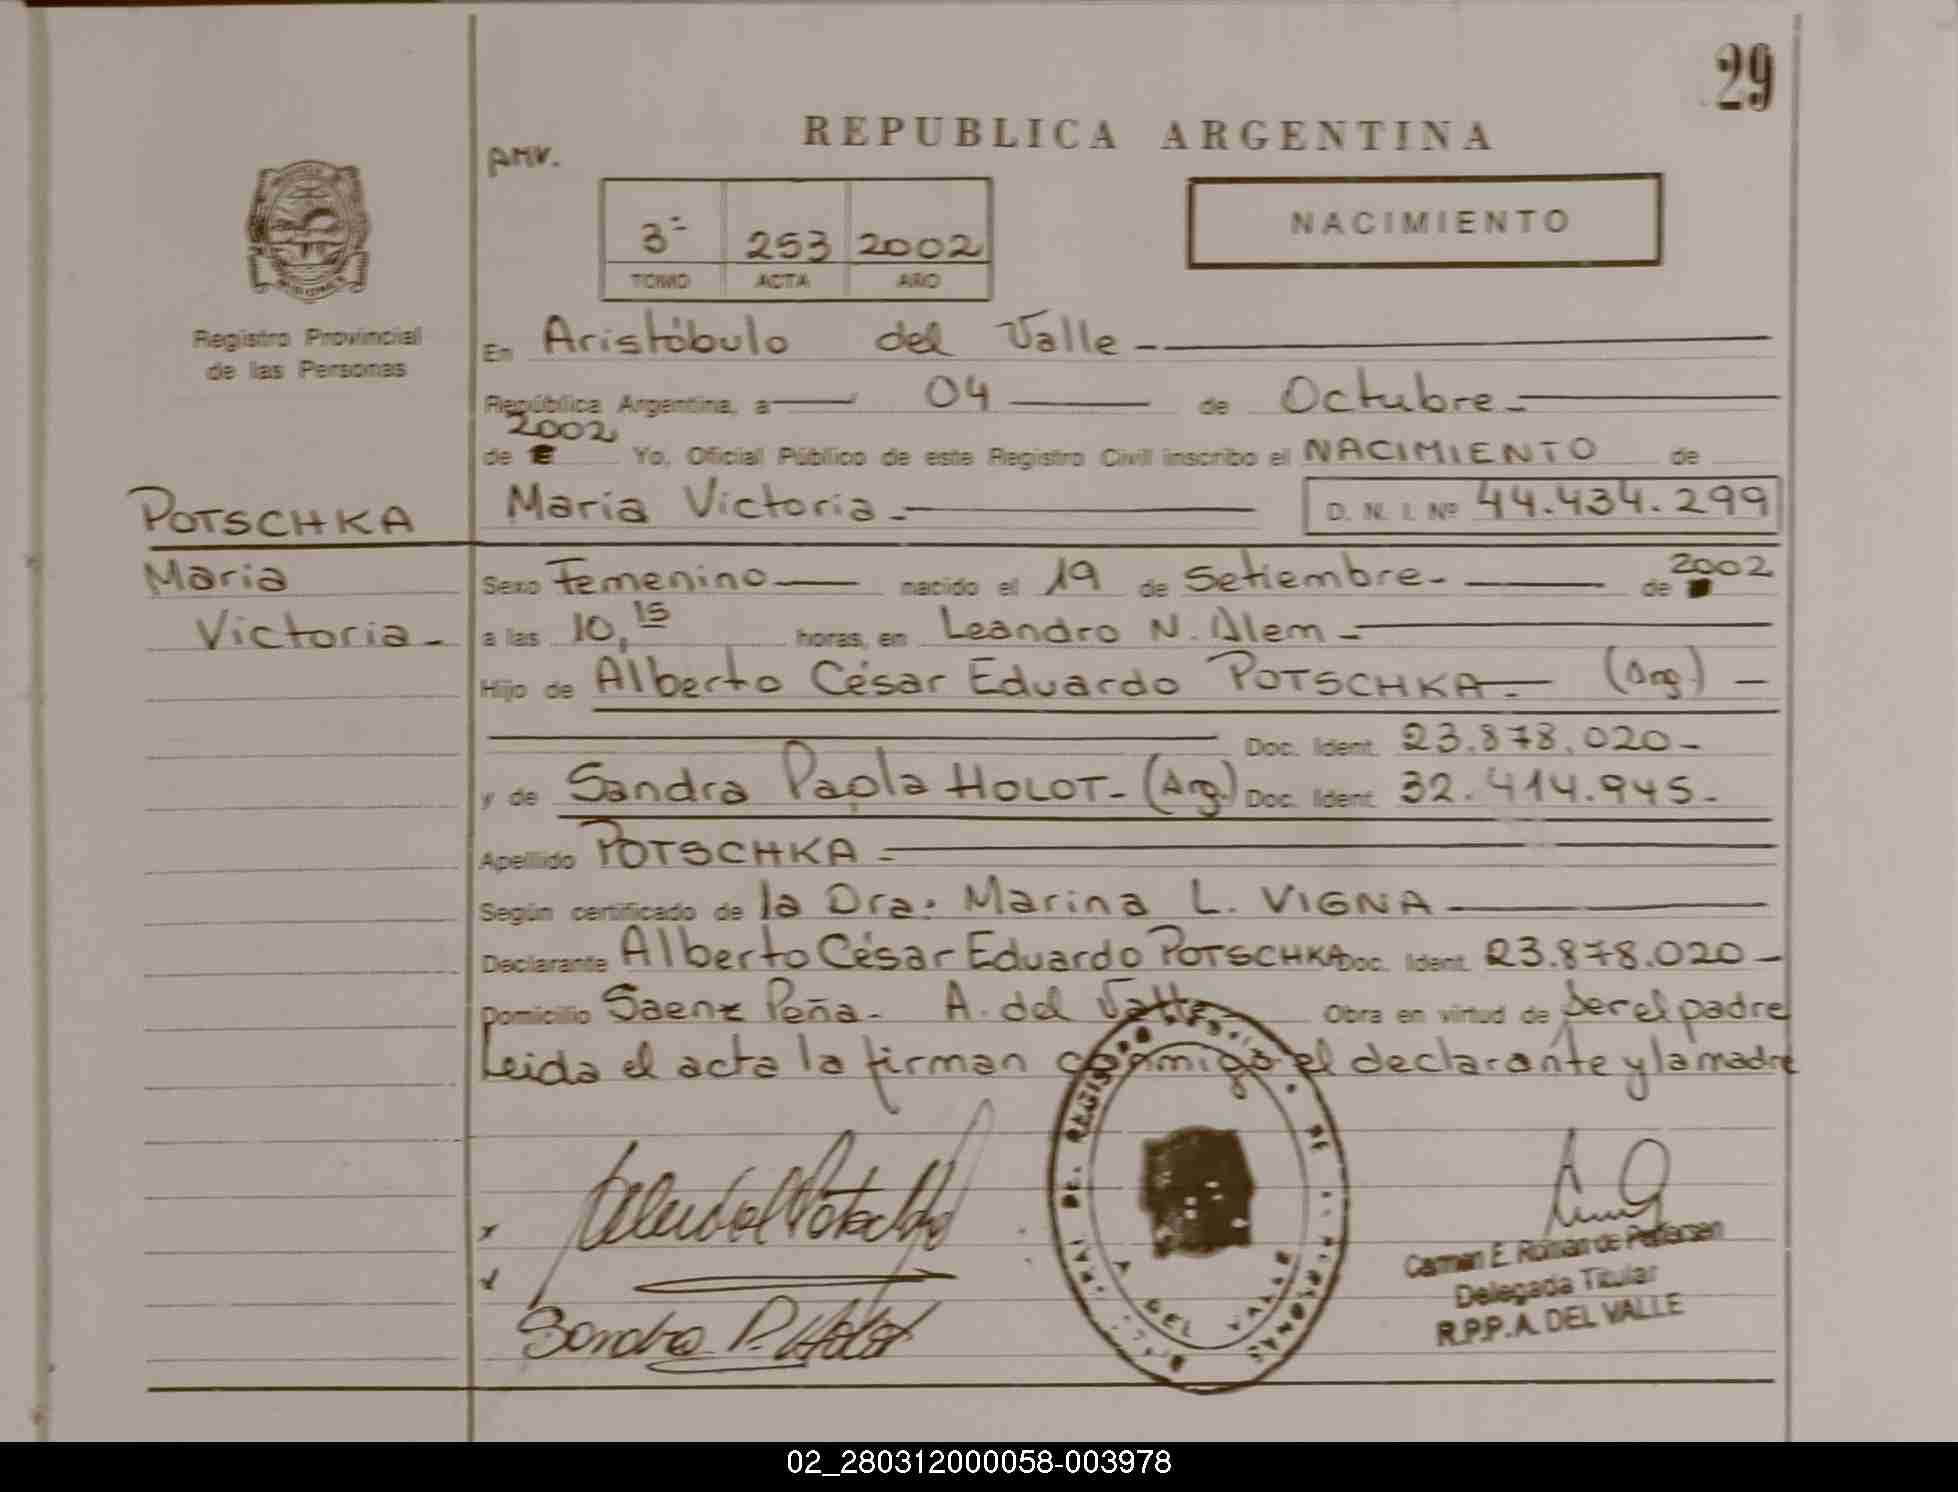 29
REPUBLICA ARGENTINA
AMV.
NACIMIENTO
3ª 253 2002
TOMO ACTA AÑO
Registro Provincial
de las Personas
En Aristóbulo del Valle
República Argentina, a 04 de Octubre
2002
de Yo, Oficial Público de este Registro Civil inscribo el NACIMIENTO de
POTSCHKA
Maria
Victoria
Maria Victoria D. N. I. Nº 44.434.299
Sexo Femenino nacido el 19 de Setiembre de 2002
a las 10,15 horas, en Leandro N. Alem
Hijo de Alberto César Eduardo POTSCHKA (Arg.)
Doc. Ident. 23.878.020
y de Sandra Paola HOLOT (Arg.) Doc. Ident. 32.414.945
Apellido POTSCHKA
Según certificado de la Dra: Marina L. VIGNA
Declarante Alberto César Eduardo POTSCHKA Doc. Ident. 23.878.020
Domicilio Saenz Peña - A. del Valle Obra en virtud de ser el padre
Leida el acta la firman conmigo el declarante y la madre
Sandra P. Holot
A DEL VALLE
Carmen E. Román de Petersen
Delegada Titular
R.P.P. A. DEL VALLE
02_280312000058-003978